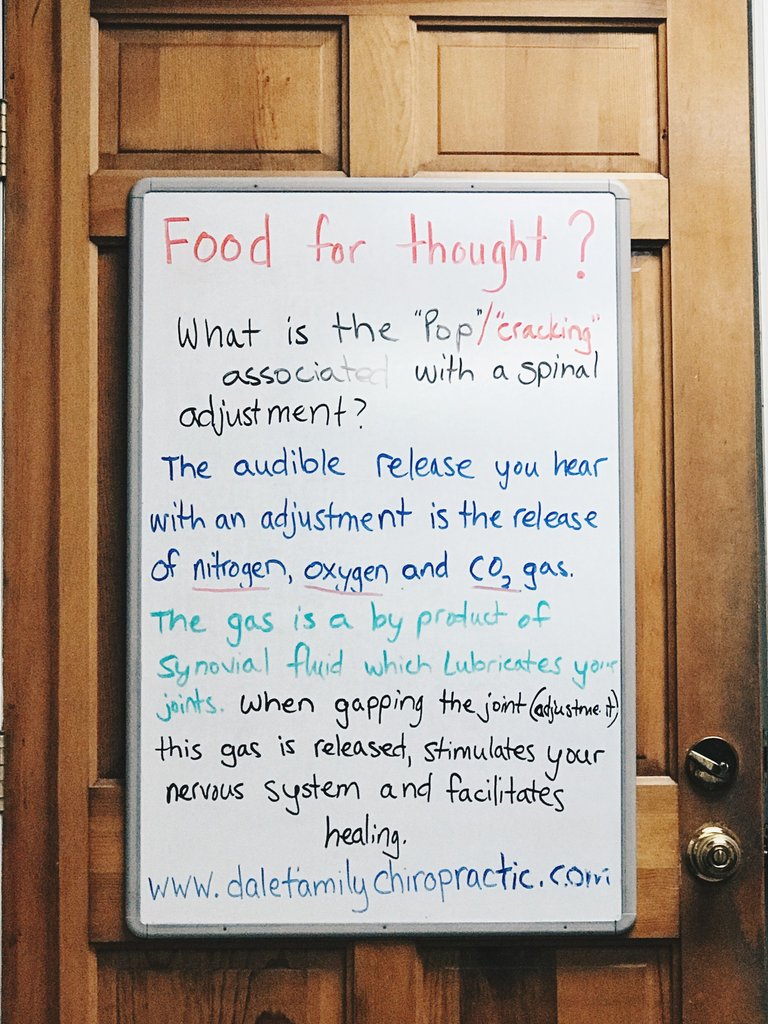 Food for thought?
What is the "Pop"/"cracking"
associated with a spinal
adjustment?
The audible release you hear
with an adjustment is the release
of nitrogen, oxygen and CO₂ gas.
The gas is a by product of
Synovial fluid which Lubricates your
joints. When gapping the joint (adjustment)
this gas is released, stimulates your
nervous system and facilitates
healing.
www.dalefamilychiropractic.com